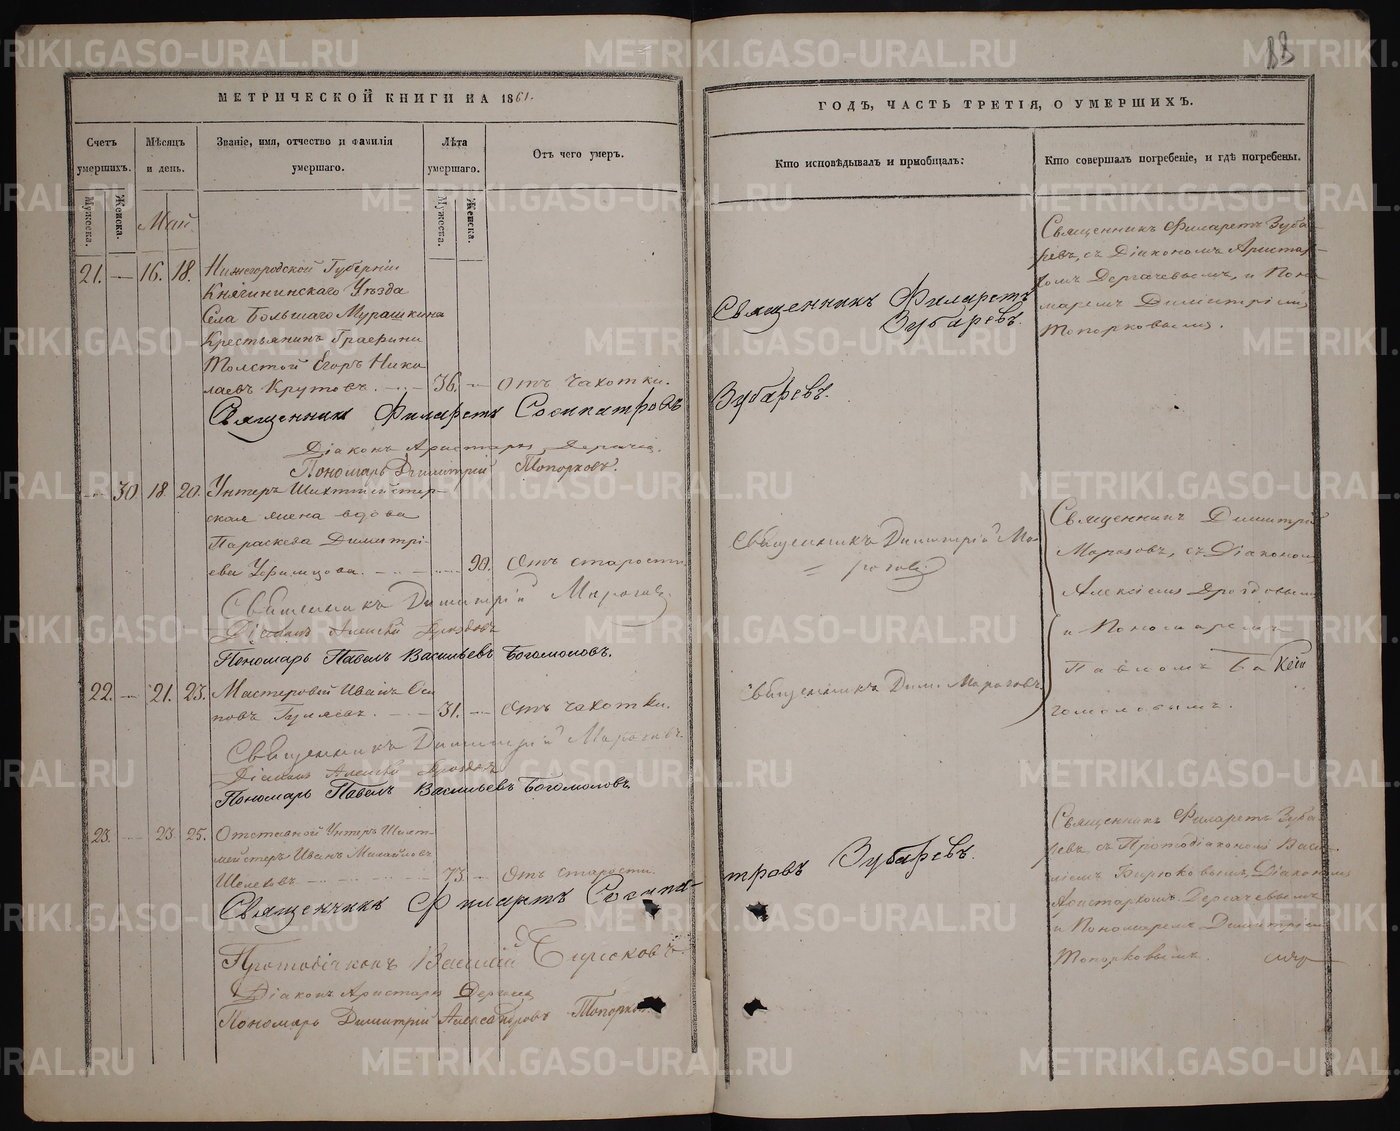 88
МЕТРИЧЕСКОЙ КНИГИ НА 1861.
Счетъ умершихъ.
Мужеска.
Женска.
Мѣсяцъ и день.
Званіе, имя, отчество и фамилія умершаго.
Лѣта умершаго.
Мужеска.
Женска.
Отъ чего умеръ.
Май
21. — 16. 18. Нижегородской Губерніи
Княгининскаго Уѣзда
Села Большаго Мурашкина
Крестьянинъ Графини
Толстой Егоръ Нико
лаевъ Крутовъ. — 36. — Отъ чахотки.
Священникъ Филаретъ Сосипатровъ
Діаконъ Аристархъ
Пономарь Димитрій Топорковъ.
— 30. 18. 20. Унтеръ Шихтмейстер-
ская жена вдова
Параскева Димитрі-
ева — 90. Отъ старости
Священникъ Димитрій Морозовъ
Діаконъ Алексѣй Дроздовъ
Пономарь Павелъ Васильевъ Богомоловъ.
22. — 21. 23. Мастеровой Иванъ Оси
повъ Гуляевъ. — 31. — Отъ чахотки.
Священникъ Димитрій Морозовъ.
Діаконъ Алексѣй Дроздовъ
Пономарь Павелъ Васильевъ Богомоловъ.
23. — 23. 25. Отставной Унтеръ Шихт-
мейстеръ Иванъ Михайловъ
— 73. — Отъ старости.
Священникъ Филаретъ Сосипа-
Протодіаконъ Василій Бирюковъ.
Діаконъ Аристархъ
Пономарь Димитрій Александровъ Топорков
ГОДЪ, ЧАСТЬ ТРЕТІЯ, О УМЕРШИХЪ.
Кто исповѣдывалъ и пріобщалъ:
Кто совершалъ погребеніе, и гдѣ погребены.
Священникъ Филаретъ
Зубаревъ.
Зубаревъ.
Священникъ Димитрій Мо-
розовъ
Священникъ Дим. Морозовъ.
тровъ Зубаревъ.
Священникъ Филаретъ Зуба-
ревъ, съ Діакономъ Аристар-
хомъ Дергачевымъ, и Поно-
маремъ Димитріемъ
Топорковымъ.
Священникъ Димитрій
Морозовъ, съ Діакономъ
Алексіемъ Дроздовымъ
и Пономаремъ
Павломъ Бо
гомоловымъ.
Священникъ Филаретъ Зуба-
ревъ съ Протодіакономъ Васи-
ліемъ Бирюковымъ, Діакономъ
Аристархомъ Дергачевымъ
и Пономаремъ Димитріемъ
Топорковымъ.
METRIKI.GASO-URAL.RU